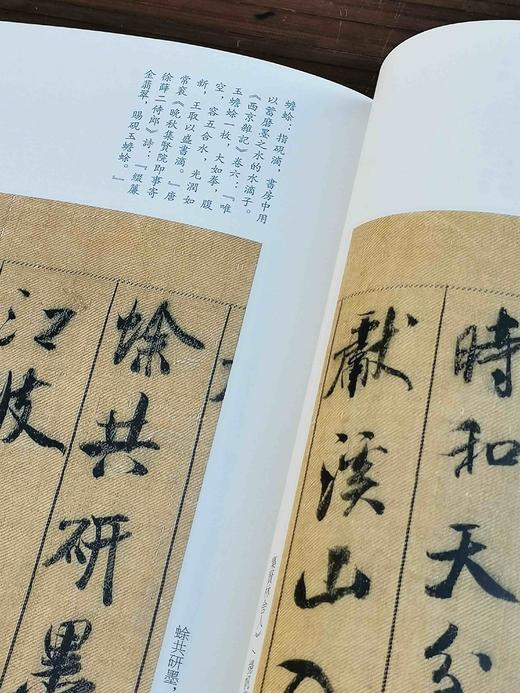 時和天分
獻溪山入
蟾蜍：指硯滴，書房中用
以蓄磨墨之水的水滴子。
《西京雜記》卷六：『唯
玉蟾蜍一枚，大如拳，腹
空，容五合水，光潤如
新，王取以盛書滴。』唐
常袞《晚秋集賢院即事寄
徐薛二侍郎》詩：『綴簾
金翡翠，賜硯玉蟾蜍。』
蜍共研墨
江波
蜍共研墨，